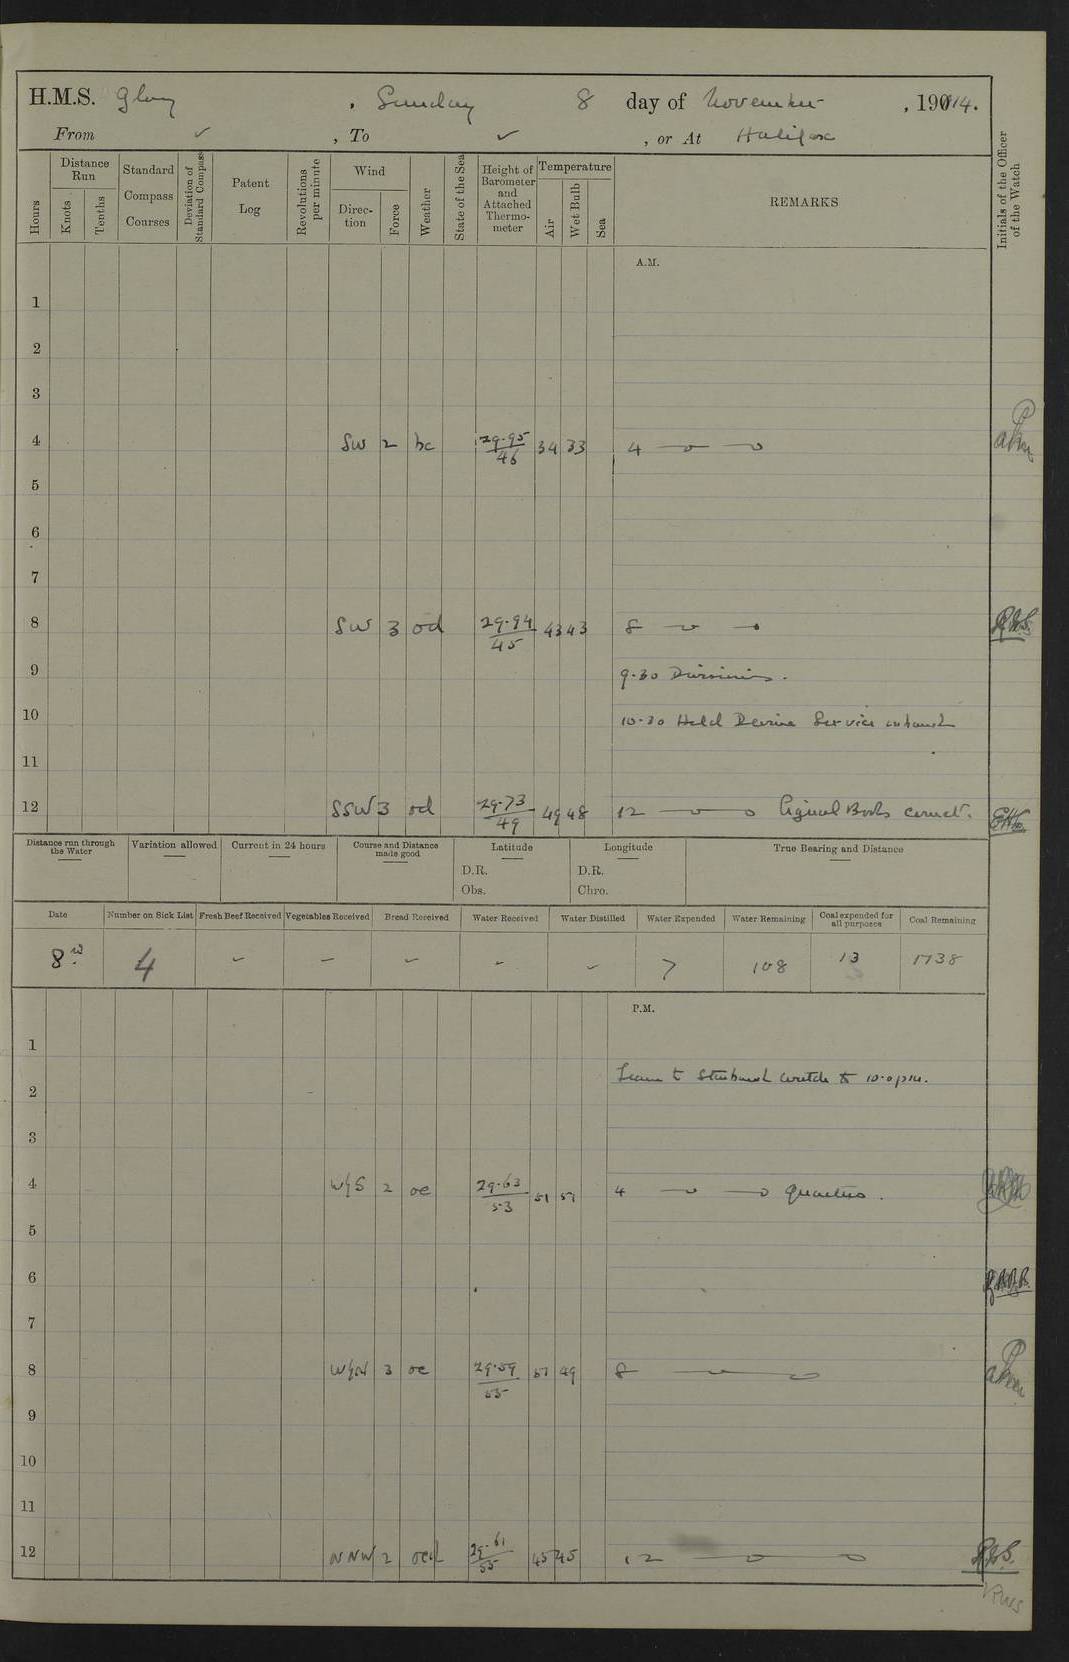 H.M.S. Glory , Sunday 8 day of November , 1914.
From ✓ , To ✓ , or At Halifax
Hours
Distance Run
Knots
Tenths
Standard Compass Courses
Deviation of Standard Compass
Patent Log
Revolutions per minute
Wind
Direction
Force
Weather
State of the Sea
Height of Barometer and Attached Thermo-meter
Temperature
Air
Wet Bulb
Sea
REMARKS
Initials of the Officer of the Watch
A.M.
1
2
3
4 SW 2 bc 29.95/46 34 33 4
5
6
7
8 SW 3 od 29.94/45 43 43 8
9 9.30 Divisions.
10 10.30 Held Devine Service on board
11
12 SSW 3 od 29.73/49 49 48 12 Signal Books correct.
Distance run through the Water
Variation allowed
Current in 24 hours
Course and Distance made good
Latitude
D.R.
Obs.
Longitude
D.R.
Chro.
True Bearing and Distance
Date Number on Sick List Fresh Beef Received Vegetables Received Bread Received Water Received Water Distilled Water Expended Water Remaining Coal expended for all purposes Coal Remaining
8 4 - - - - - 7 108 13 1738
P.M.
1
Leave to Starboard watch to 10.0 pm.
2
3
4 WyS 2 oc 29.63/53 51 51 4 Quarters.
5
6
7
8 WyN 3 oc 29.59/55 51 49 8
9
10
11
12 NNW 2 ocd 29.61/55 45 45 12